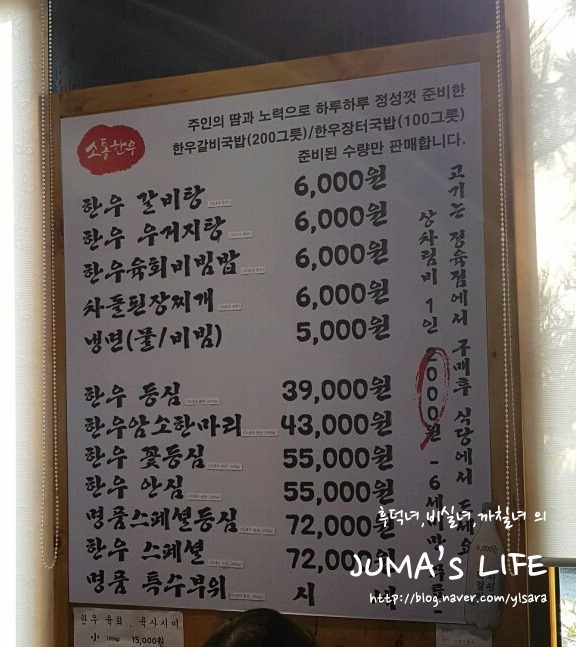 주인의 땀과 노력으로 하루하루 정성껏 준비한
한우갈비국밥(200그릇)/한우장터국밥(100그릇)
준비된 수량만 판매합니다.
소통한우
한우 갈비탕 6,000원
한우 우거지탕 6,000원
한우육회비빔밥 6,000원
차돌된장찌개 6,000원
냉면(물/비빔) 5,000원
한우 등심 39,000원
한우암소한마리 43,000원
한우 꽃등심 55,000원
한우 안심 55,000원
명품스페셜등심 72,000원
한우 스페셜 72,000원
명품 특수부위 시
고기는 정육점에서 구매후 식당에서
상차림비 1인 2000원 - 6세
한우 육회, 육사시미
小 15,000원
4,000원
후덕녀,비실녀,까칠녀 의
JUMA'S LIFE
http://blog.naver.com/ylsara